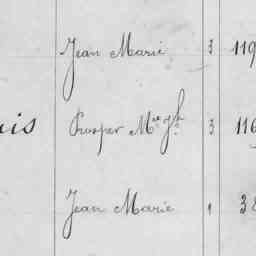 Jean Marie 3 119
uis Prosper M.ie Jh. 3 116
Jean Marie 1 38